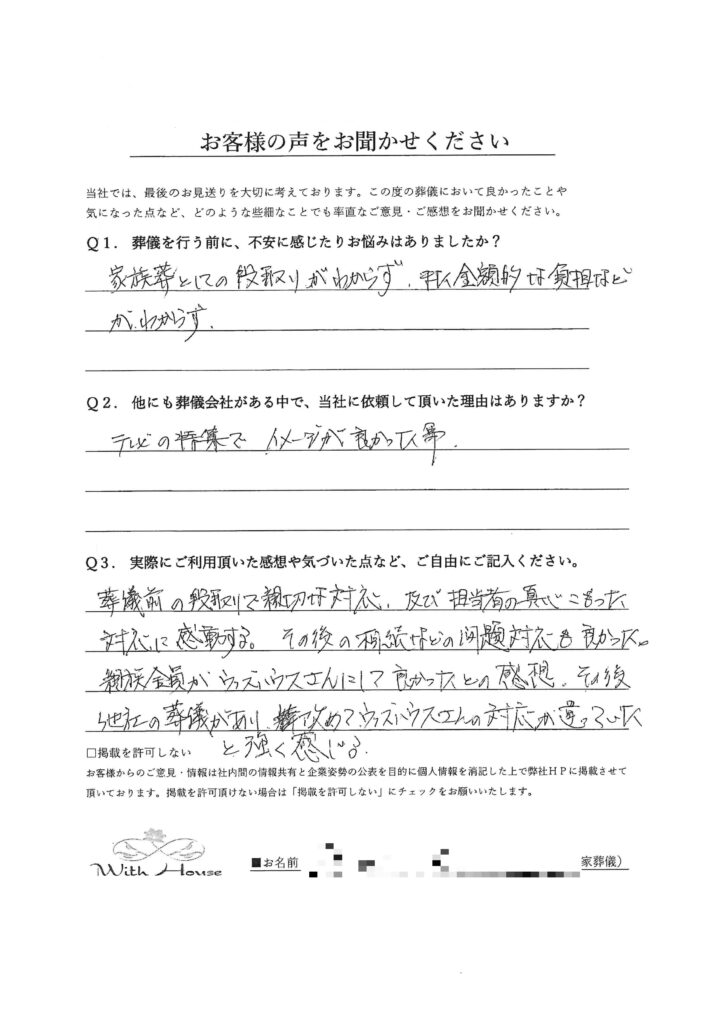 お客様の声をお聞かせください
当社では、最後のお見送りを大切に考えております。この度の葬儀において良かったことや
気になった点など、どのような些細なことでも率直なご意見・ご感想をお聞かせください。
Q1. 葬儀を行う前に、不安に感じたりお悩みはありましたか？
家族葬としての段取りがわからず、又金額的な負担など
がわからず.
Q2. 他にも葬儀会社がある中で、当社に依頼して頂いた理由はありますか？
テレビの特集で イメージが良かった等.
Q3. 実際にご利用頂いた感想や気づいた点など、ご自由にご記入ください。
葬儀前の段取りで親切な対応、及び担当者の真心こもった
対応に感動する。その後の相続などの問題対応も良かった。
親族全員がウィズハウスさんにして良かったとの感想、その後
他社の葬儀があり、改めてウィズハウスさんの対応が違っていた
と強く感じる.
□掲載を許可しない
お客様からのご意見・情報は社内間の情報共有と企業姿勢の公表を目的に個人情報を消記した上で弊社HPに掲載させて
頂いております。掲載を許可頂けない場合は「掲載を許可しない」にチェックをお願いいたします。
With House
■お名前 家葬儀）